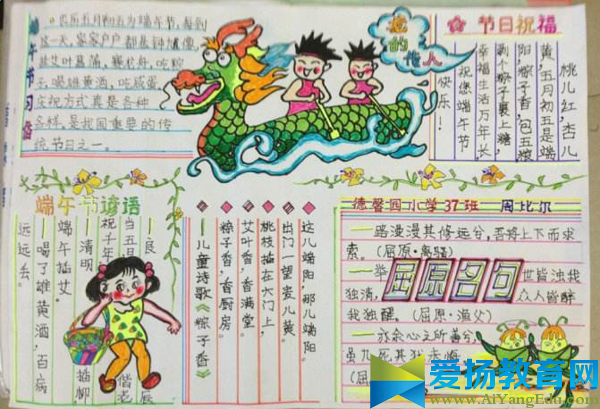 端午节习俗
农历五月初五为端午节，每到
这一天，家家户户都悬钟馗像，
挂艾叶菖蒲，赛龙舟，吃粽
子，喝雄黄酒，吃咸蛋，
庆祝方式真是各种
各样，是我国重要的传
统节日之一。
龙的传人
节日祝福
桃儿红，杏儿
黄，五月初五是端
阳，粽子香，包五粮，
剥个粽子裹上糖，
幸福生活万年长，
祝您端午节
快乐！
端午节谚语
清明插柳
端午插艾。
喝了雄黄酒，百病
远远丢。
这儿端阳，那儿端阳。
出门一望麦儿黄。
桃枝插在大门上，
艾叶香，香满堂。
粽子香，香厨房。
——儿童诗歌《粽子香》
德馨园小学37班 周比尔
屈原名句
路漫漫其修远兮，吾将上下而求
索。（屈原·离骚）
举世皆浊我
独清，众人皆醉
我独醒。（屈原·渔父）
亦余心之所善兮，
虽九死其犹未悔
爱扬教育网
www.AiYangEdu.com